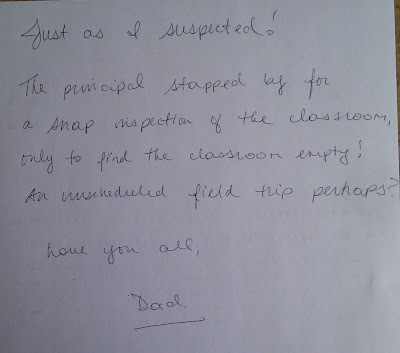 Just as I suspected!
The principal stapped by for
a snap inspection of the classroom,
only to find the classroom empty!
An unscheduled field trip perhaps?
Love you all,
Dad.